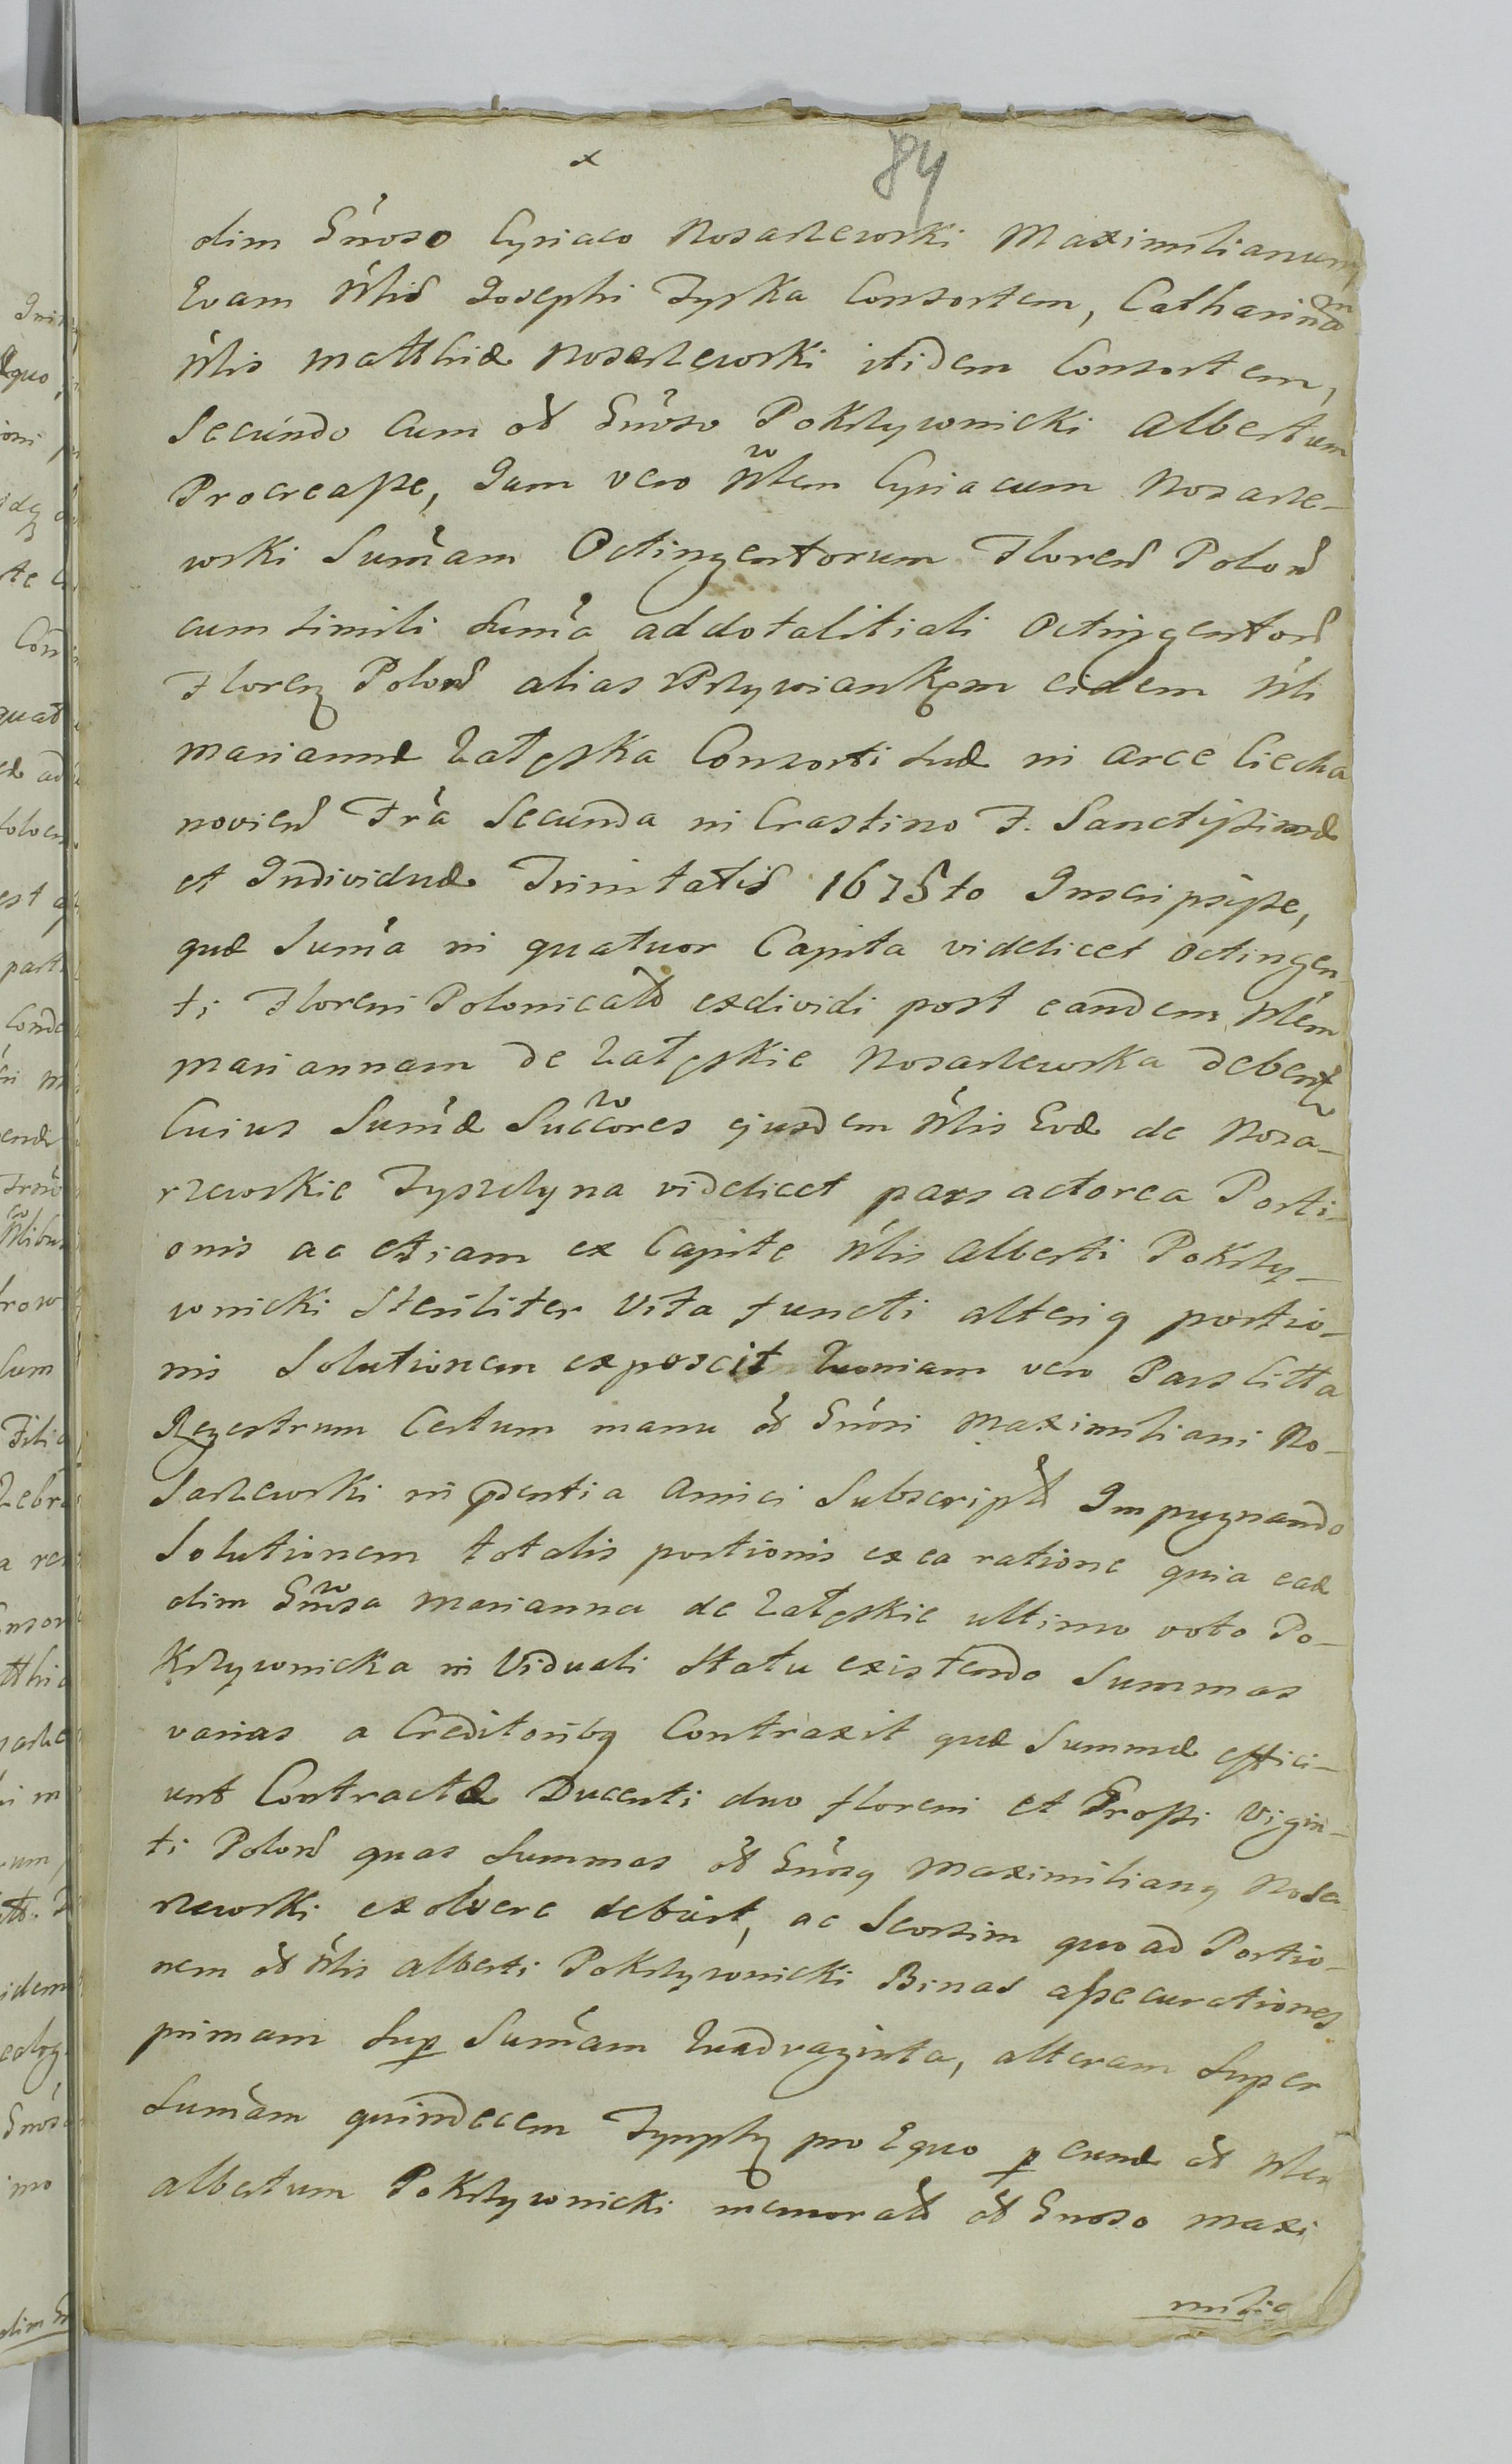 x
84
olim Gnoso Cyriaco Nosarzewski Maximilianum,
Evam Nlis Josephi Tyska Consortem, Catharinam
Nlis Matthiæ Nosarzewski itidem Consortem,
Secundo cum ol Gnoso Pokrzywnicki Albertum
Procreasse, Jam vero Nlem Cyriacum Nosarze-
wski Sumam Octingentorum Floren Polon
cum simili suma addotalitiali Octingentor
Floren Polon alias Przywiankem eidem Nli
Mariannæ Załęska Consorti suæ in arce Ciecha
novien Fra Secunda in Crastino F. Sanctissimæ
et Individuæ Trinitatis 1675to Inscripsisse,
quæ Suma in quatuor Capita videlicet octingen
ti Floreni Polonicales exdividi post eandem Nlem
Mariannam de Załęskie Nosarzewska debent
Cuius Sumæ Succores ejusdem Nlis Evæ de Nosa-
rzewskie Tyszczyna videlicet pars actorea Porti-
onis ac etiam ex Capite Nlis Alberti Pokrzy-
wnicki Steriliter Vita functi alteriq portio-
nis Solutionem exposcit Quoniam vero Pars Citta
Regestrum Certum manu ol Gnosi Maximiliani No-
sarzewski in psentia Amici Subscript Impugnando
Solutionem totalis portionis ex ea ratione quia ead
olim Gnosa Marianna de Załęskie ultimo voto Po-
krzywnicka in Viduali Statu existendo Summas
varias a Creditoribq Contraxit quæ Summæ effici-
unt Contractæ Ducenti duo floreni et Grossi Vigin-
ti Polon quas Summas ol Gnosq Maximilianq Nosa
rzewski exolvere debuit, ac Seorsim quo ad Portio-
nem ol Nlis Alberti Pokrzywnicki Binas assecurationes
primam sup Sumam Quadraginta, alteram super
Sumam quindecem Tymph pro Equo p eund ol Nlem
Albertum Pokrzywnicki memorato ol Gnoso Maxi
milia